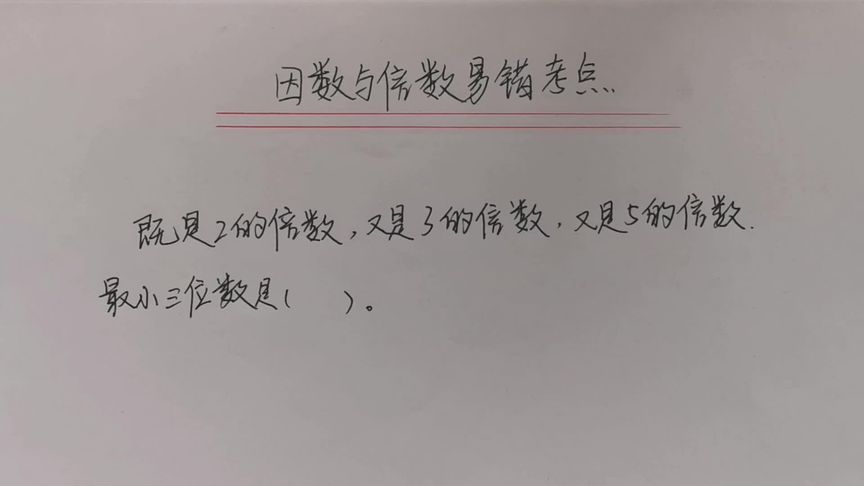 因数与倍数易错考点
既是2的倍数,又是3的倍数,又是5的倍数.
最小三位数是( )。